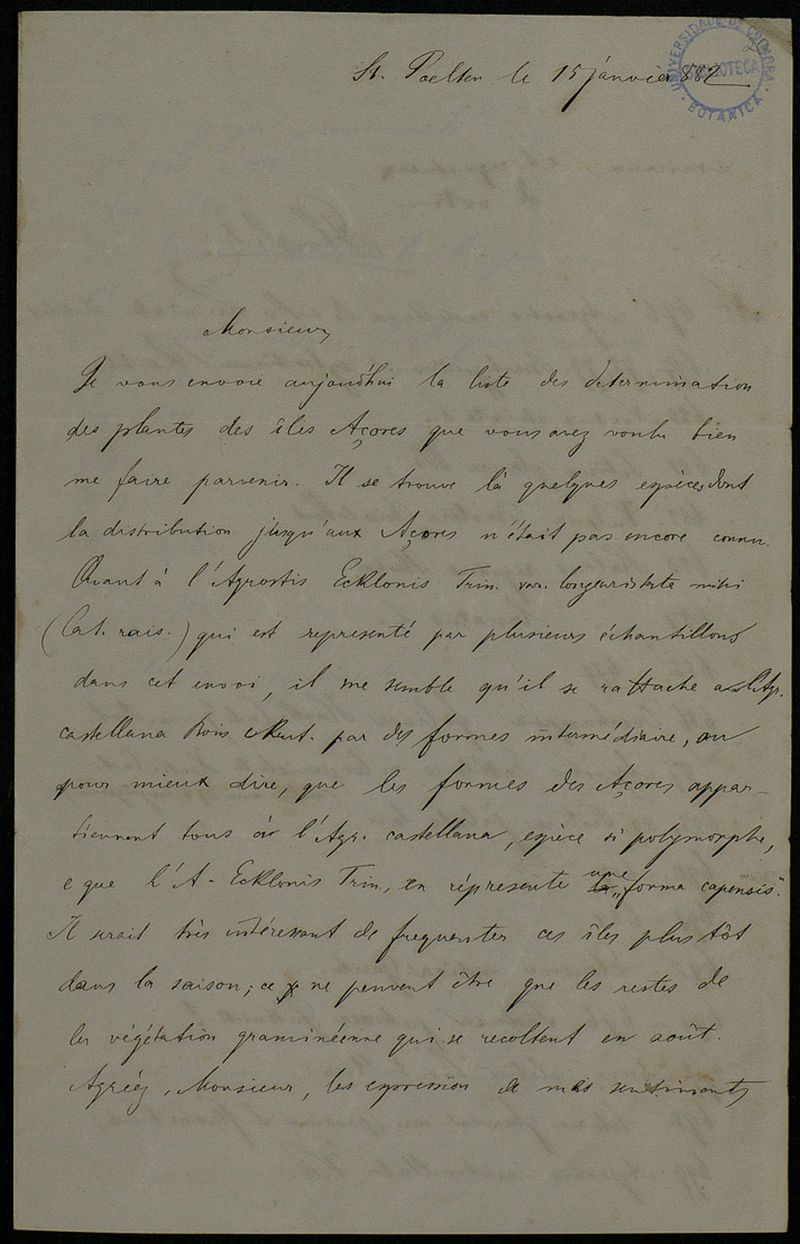 St. Poelten le 15 janvier 882
UNIVERSIDADE DE COIMBRA
BIBLIOTECA
BOTANICA
Monsieur,
Je vous envoie aujourd'hui la liste des determination
des plantes des îles Açores que vous avez voulu bien
me faire parvenir. Il se trouve là quelques espèces dont
la distribution jusqu'aux Açores n'était pas encore connu.
Quant à l'Agrostis Ecklonis Trin. var. longearistata mihi
(Cat. rais.) qui est representé par plusieurs échantillons
dans cet envoi, il me semble qu'il se rattache a l'Agr.
castellana Boiss et Reut. par des formes intermédiaire, ou
pour mieux dire, que les formes des Açores appar-
tiennent tous à l'Agr. castellana, espèce si polymorphe,
e que l'A. Ecklonis Trin, en répresente une „forma capensis".
Il serait très intéressant de frequenter ces îles plus tôt
dans la saison; ce ne peuvent être que les restes de
la végétation graminéenne qui se recoltent en août.
Agréez, Monsieur, les expression de mes sentiments